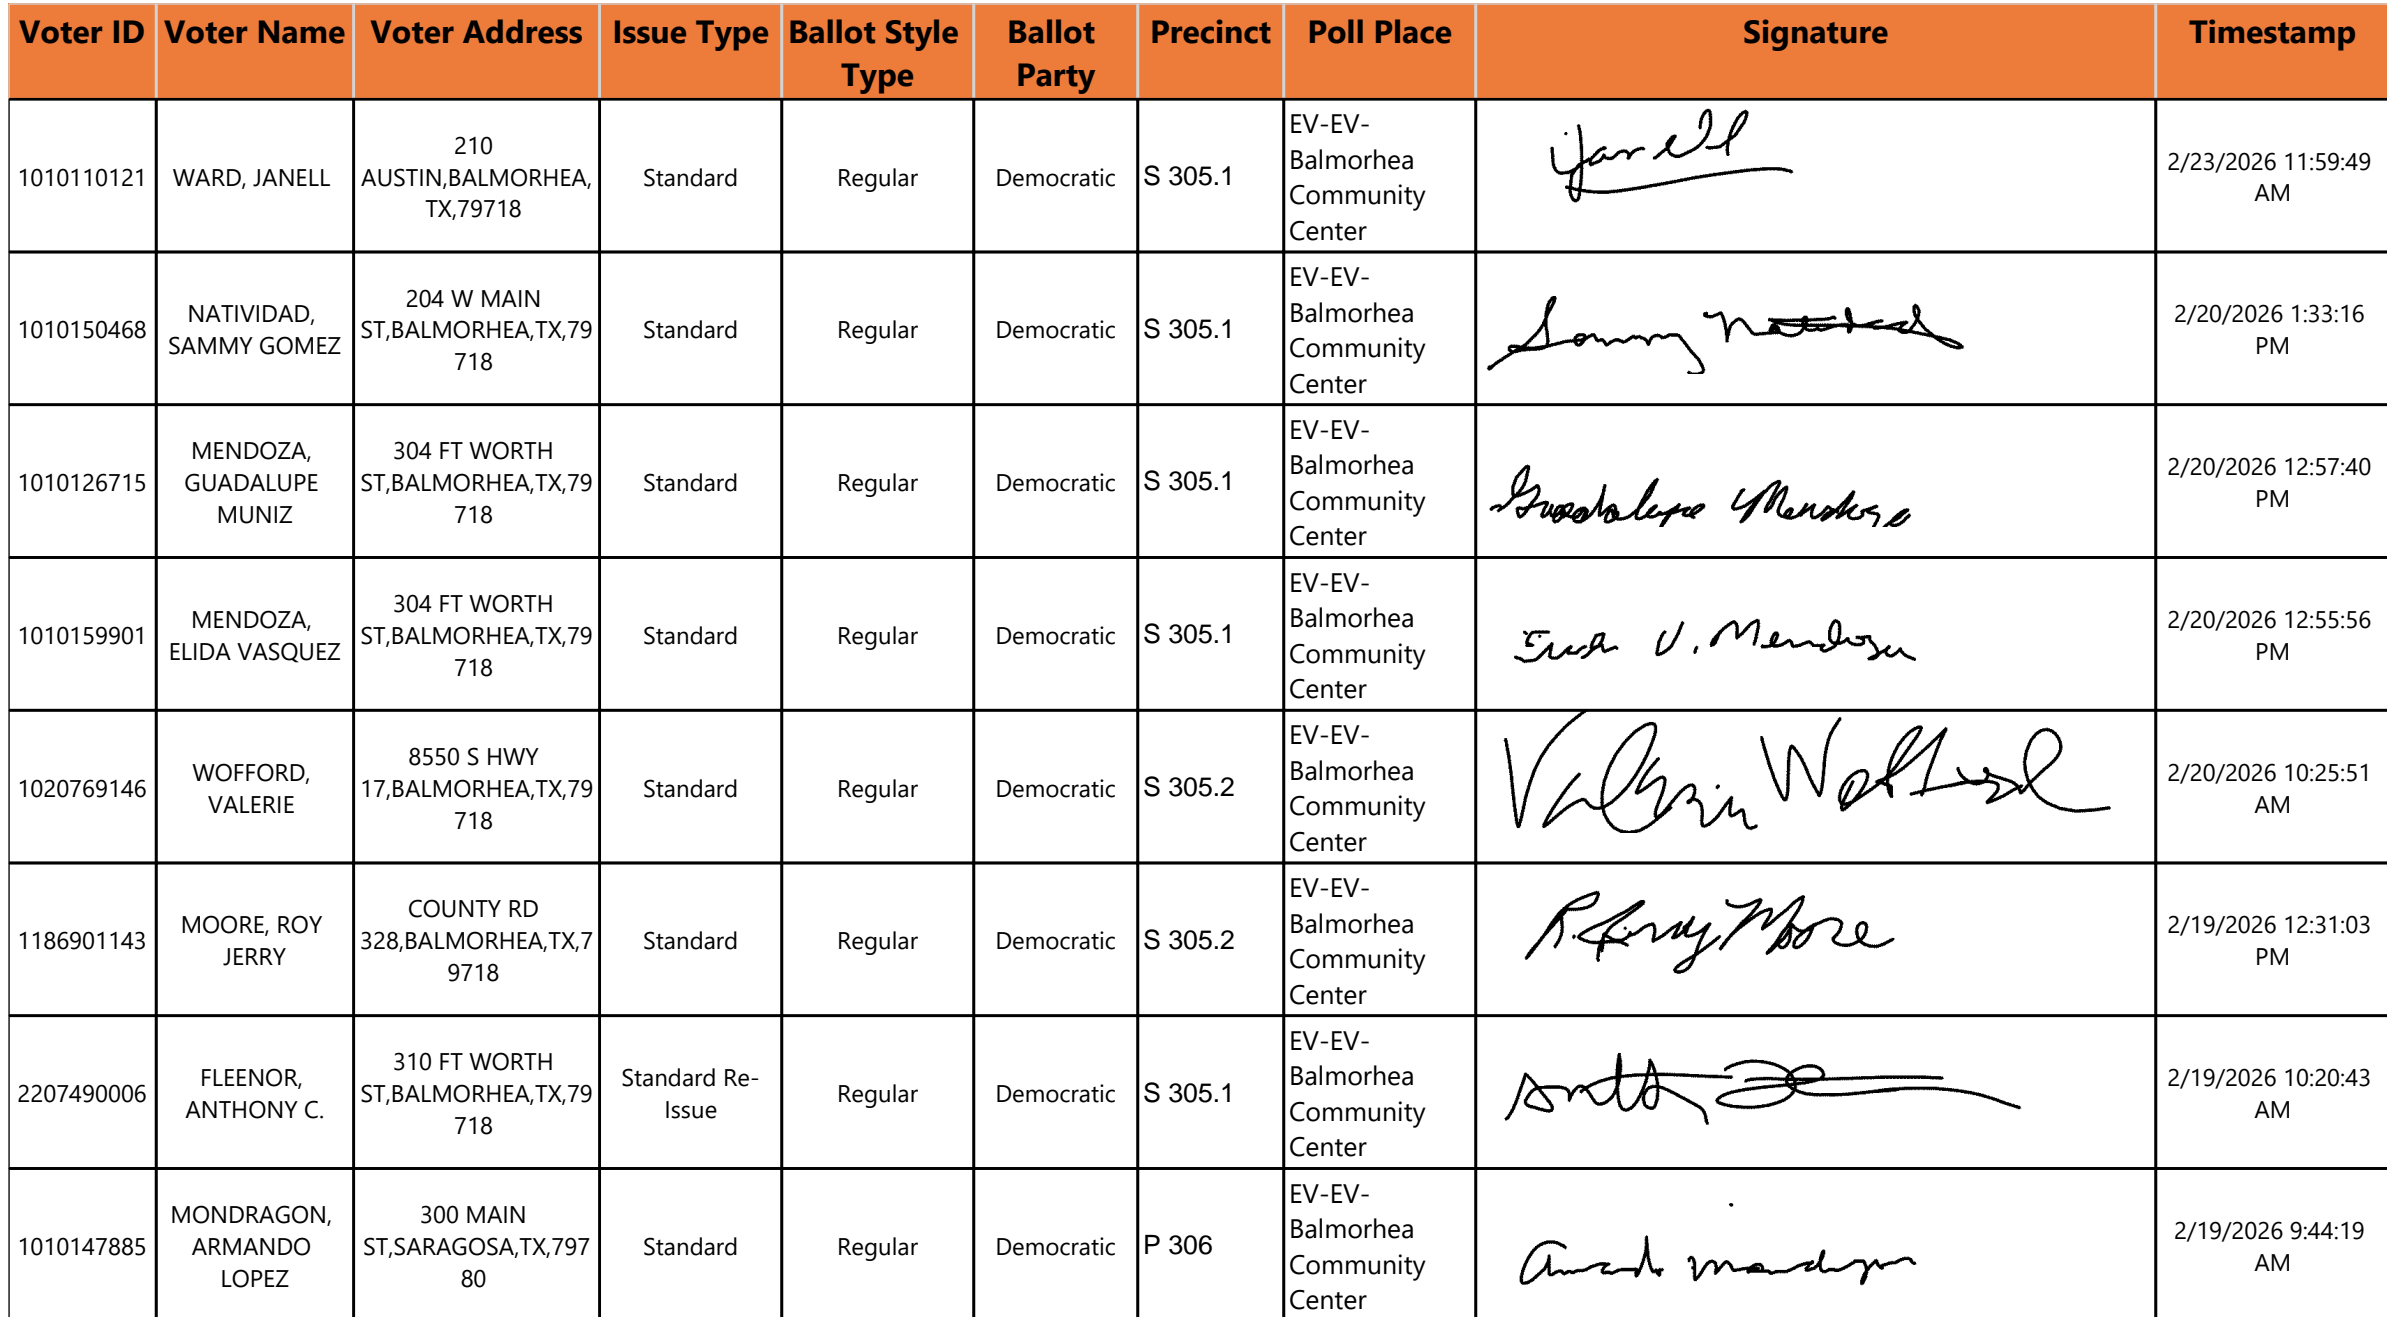 Voter ID Voter Name Voter Address Issue Type Ballot Style Type Ballot Party Precinct Poll Place Signature Timestamp
1010110121
WARD, JANELL
210
AUSTIN,BALMORHEA,
TX,79718
Standard
Regular
Democratic
S 305.1
EV-EV-
Balmorhea
Community
Center
Janell
2/23/2026 11:59:49
AM
1010150468
NATIVIDAD,
SAMMY GOMEZ
204 W MAIN
ST,BALMORHEA,TX,79
718
Standard
Regular
Democratic
S 305.1
EV-EV-
Balmorhea
Community
Center
Sammy Natividad
2/20/2026 1:33:16
PM
1010126715
MENDOZA,
GUADALUPE
MUNIZ
304 FT WORTH
ST,BALMORHEA,TX,79
718
Standard
Regular
Democratic
S 305.1
EV-EV-
Balmorhea
Community
Center
Guadalupe Mendoza
2/20/2026 12:57:40
PM
1010159901
MENDOZA,
ELIDA VASQUEZ
304 FT WORTH
ST,BALMORHEA,TX,79
718
Standard
Regular
Democratic
S 305.1
EV-EV-
Balmorhea
Community
Center
V. Mendoza
2/20/2026 12:55:56
PM
1020769146
WOFFORD,
VALERIE
8550 S HWY
17,BALMORHEA,TX,79
718
Standard
Regular
Democratic
S 305.2
EV-EV-
Balmorhea
Community
Center
Valerie Wofford
2/20/2026 10:25:51
AM
1186901143
MOORE, ROY
JERRY
COUNTY RD
328,BALMORHEA,TX,7
9718
Standard
Regular
Democratic
S 305.2
EV-EV-
Balmorhea
Community
Center
R. Jerry Moore
2/19/2026 12:31:03
PM
2207490006
FLEENOR,
ANTHONY C.
310 FT WORTH
ST,BALMORHEA,TX,79
718
Standard Re-
Issue
Regular
Democratic
S 305.1
EV-EV-
Balmorhea
Community
Center
2/19/2026 10:20:43
AM
1010147885
MONDRAGON,
ARMANDO
LOPEZ
300 MAIN
ST,SARAGOSA,TX,797
80
Standard
Regular
Democratic
P 306
EV-EV-
Balmorhea
Community
Center
Armando Mondragon
2/19/2026 9:44:19
AM